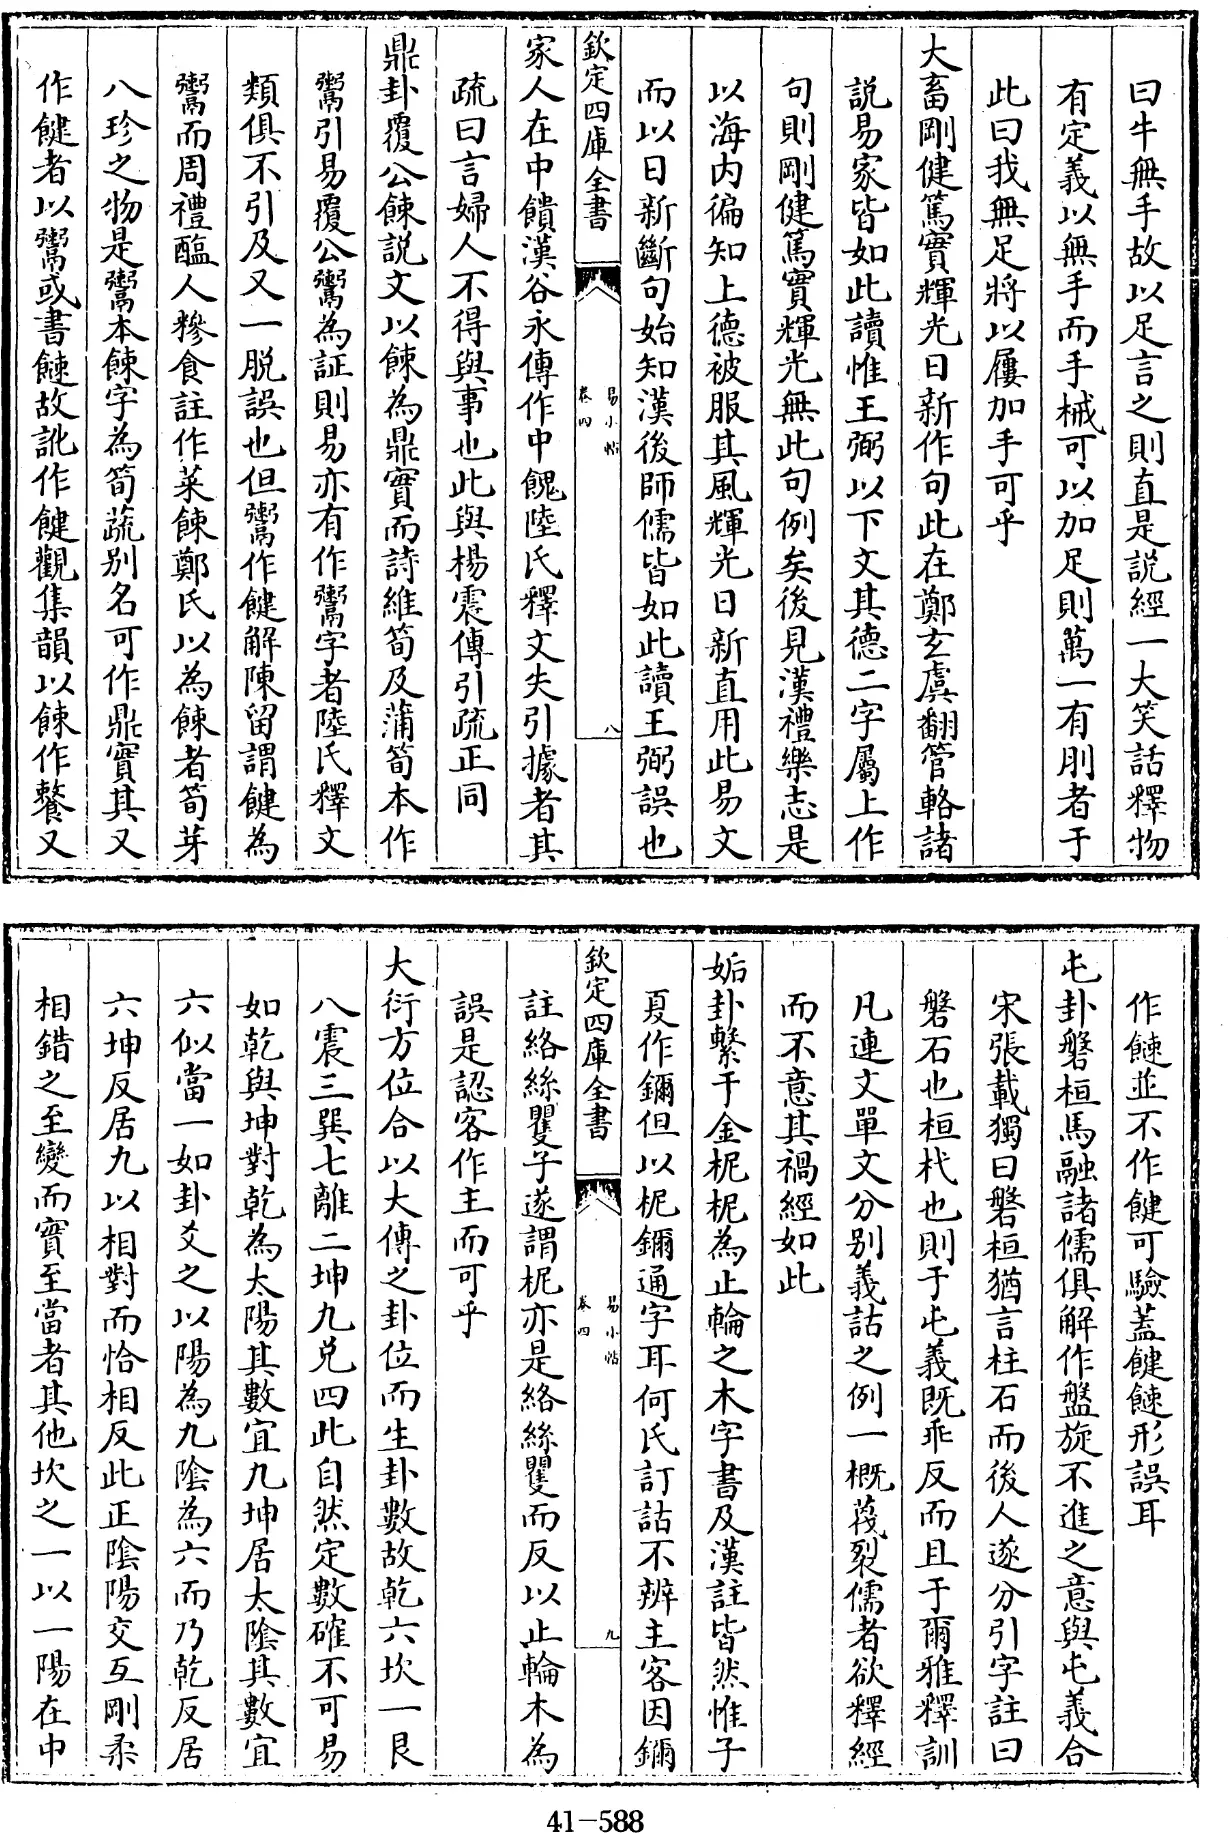 曰牛無手故以足言之則直是説經一大笑話釋物
有定義以無手而手械可以加足則萬一有刖者于
此曰我無足將以屨加手可乎
大畜剛健篤實輝光日新作句此在鄭玄虞翻管輅諸
説易家皆如此讀惟王弼以下文其德二字屬上作
句則剛健篤實輝光無此句例矣後見漢禮樂志是
以海内徧知上德被服其風輝光日新直用此易文
而以日新斷句始知漢後師儒皆如此讀王弼誤也
欽定四庫全書
易小帖
卷四
八
家人在中饋漢谷永傳作中餽陸氏釋文失引據者其
疏曰言婦人不得與事也此與楊震傳引疏正同
鼎卦覆公餗説文以餗為鼎實而詩維筍及蒲筍本作
鬻引易覆公鬻為証則易亦有作鬻字者陸氏釋文
類俱不引及又一脱誤也但鬻作健解陳留謂健為
鬻而周禮醢人糝食註作菜餗鄭氏以為餗者筍芽
八珍之物是鬻本餗字為筍蔬别名可作鼎實其又
作健者以鬻或書餗故訛作健觀集韻以餗作䬾又
作餗並不作健可驗蓋健餗形誤耳
屯卦磐桓馬融諸儒俱解作盤旋不進之意與屯義合
宋張載獨曰磐桓猶言柱石而後人遂分引字註曰
磐石也桓杙也則于屯義既乖反而且于爾雅釋訓
凡連文單文分别義詁之例一概茷裂儒者欲釋經
而不意其禍經如此
姤卦繫于金柅柅為止輪之木字書及漢註皆然惟子
夏作鑈但以柅鑈通字耳何氏訂詁不辨主客因鑈
欽定四庫全書
易小帖
卷四
九
註絡絲瞿子遂謂柅亦是絡絲瞿而反以止輪木為
誤是認客作主而可乎
大衍方位合以大傳之卦位而生卦數故乾六坎一艮
八震三巽七離二坤九兑四此自然定數確不可易
如乾與坤對乾為太陽其數宜九坤居太陰其數宜
六似當一如卦爻之以陽為九陰為六而乃乾反居
六坤反居九以相對而恰相反此正陰陽交互剛柔
相錯之至變而實至當者其他坎之一以一陽在中
41-588